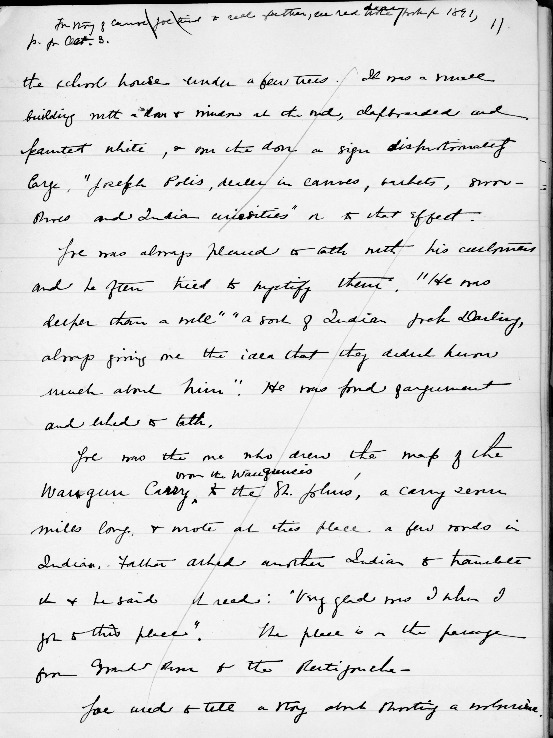 For story of canoe (Joe) and to real father, see red book for 1891, 11
p. for Oct. 3.
the school house under a few trees. It was a small
building with a door & window at the end, clapboarded and
painted white, & over the door a sign disproportionately
large, "Joseph Polis, dealer in canoes, baskets, snow-
shoes and Indian curiosities" or to that effect.
Joe was always pleased to talk with his customers
and he often tried to mystify them. "He was
deeper than a well" "a sort of Indian Jack Darling,
always giving one the idea that they didn't know
much about him". He was fond of argument
and liked to talk.
Joe was the one who drew the map of the
from the Waugansis
Waugun Carry, to the St. Johns, a carry seven
miles long, & wrote at this place a few words in
Indian. Father asked another Indian to translate
it & he said it read: "Very glad was I when I
got to this place". The place is on the passage
from Grand River to the Restigouche-
Joe used to tell a story about shooting a wolverine.